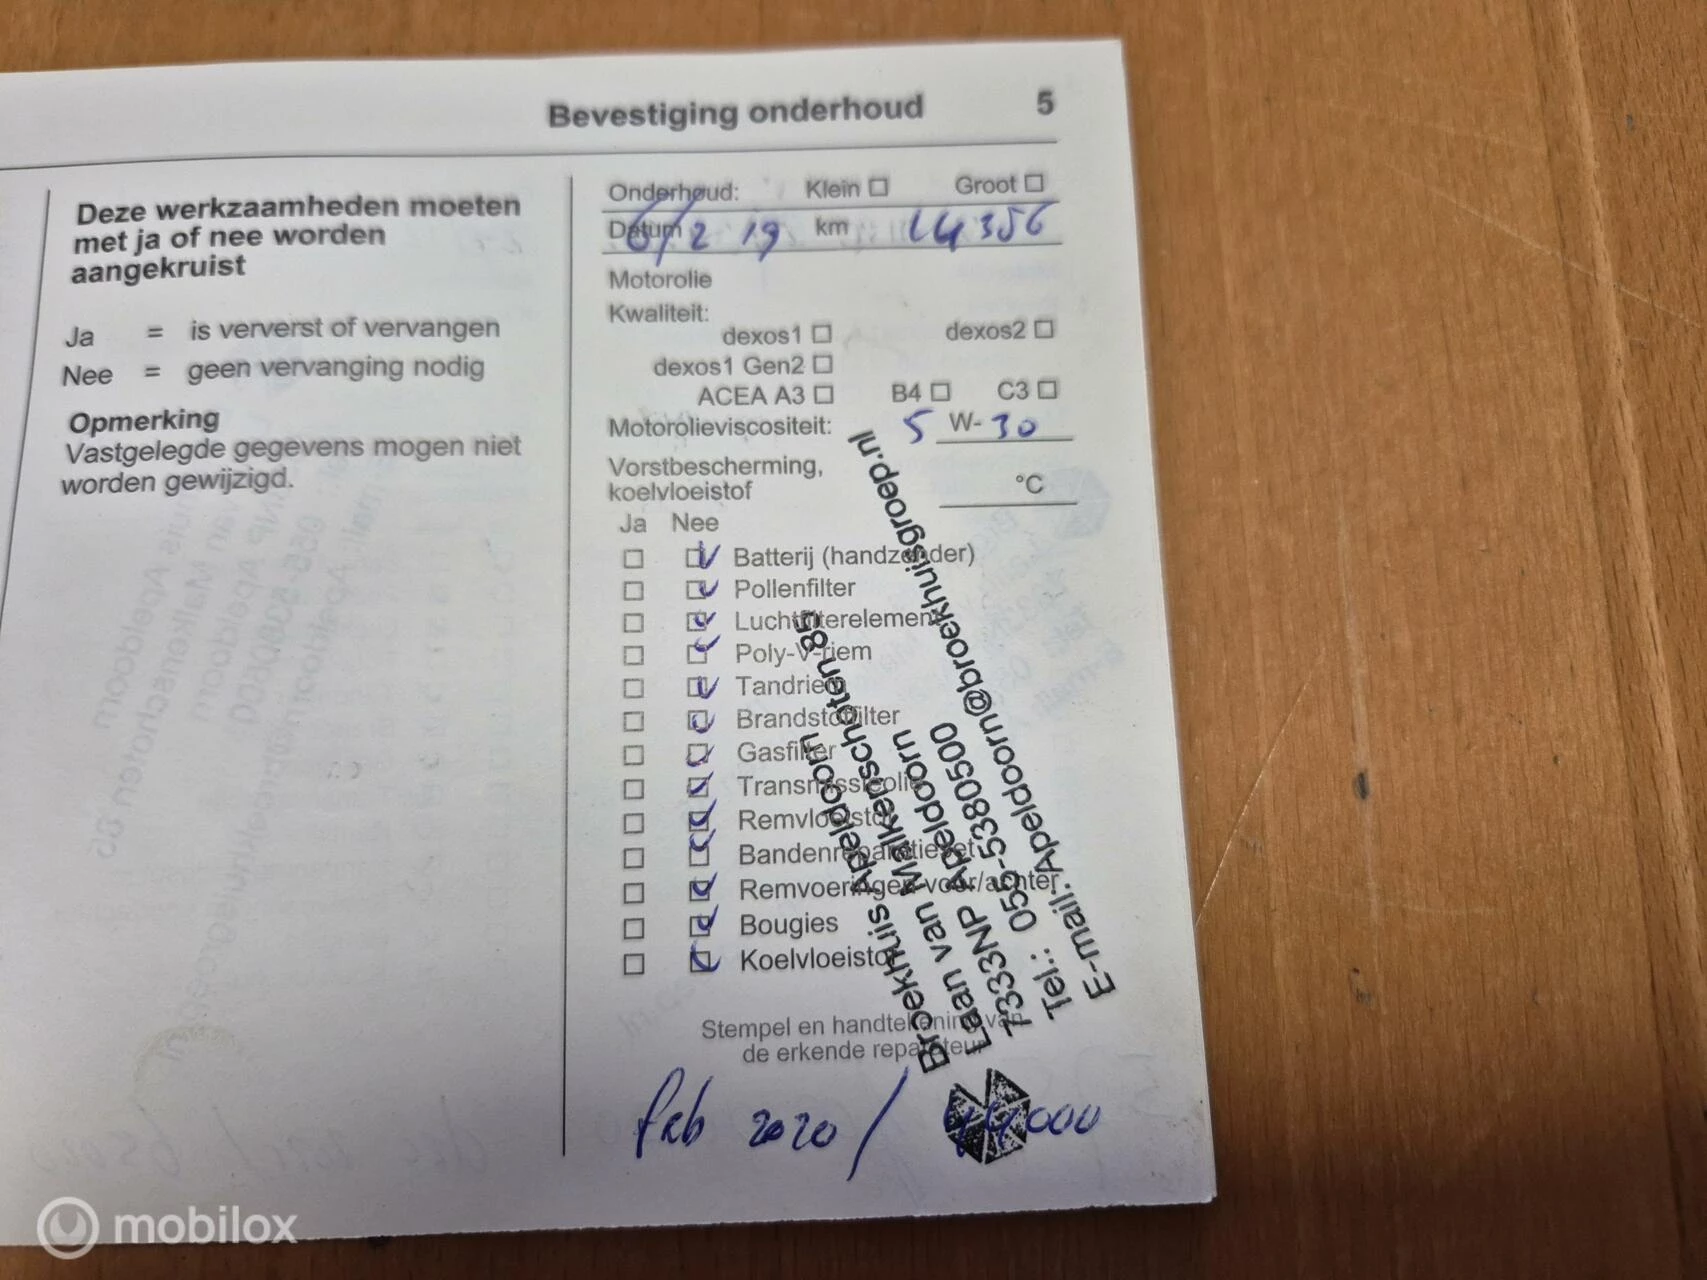 Bevestiging onderhoud 5
Deze werkzaamheden moeten
met ja of nee worden
aangekruist
Ja = is ververst of vervangen
Nee = geen vervanging nodig
Opmerking
Vastgelegde gegevens mogen niet
worden gewijzigd.
Onderhoud: Klein Groot
Datum 6/2 19 km 14356
Motorolie
Kwaliteit:
dexos1 dexos2
dexos1 Gen2
ACEA A3 B4 C3
Motorolieviscositeit: 5 W- 30
Vorstbescherming,
koelvloeistof °C
Ja Nee
Batterij (handzender)
Pollenfilter
Luchtfilterelement
Poly-V-riem
Tandriem
Brandstoffilter
Gasfilter
Transmissieolie
Remvloeistof
Bandenreparatieset
Remvoeringen voor/achter
Bougies
Koelvloeistof
Stempel en handtekening van
de erkende reparateur
Broekhuis Apeldoorn
Laan van Malkenschoten 85
7333NP Apeldoorn
Tel.: 055-5380500
E-mail: Apeldoorn@broekhuisgroep.nl
feb 2020 / 44000
mobilox